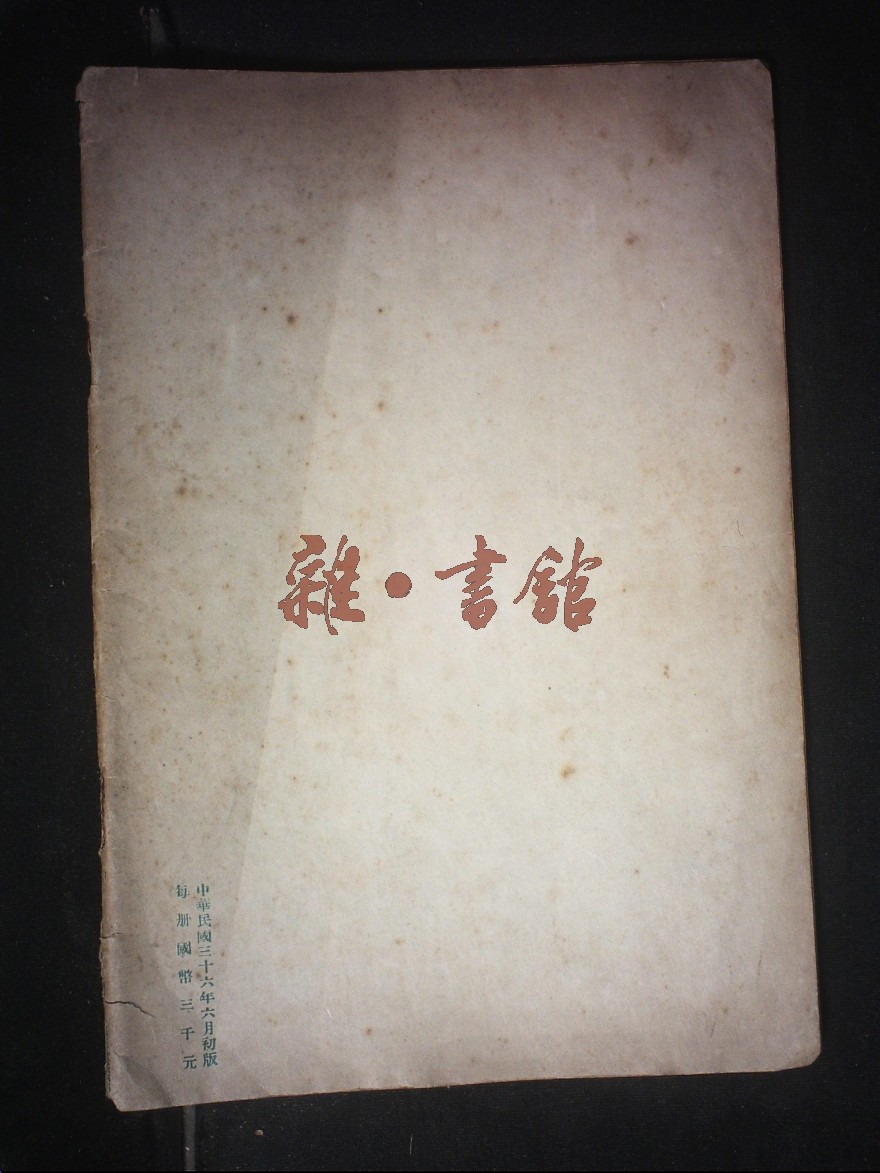 雜·書館
中華民國三十六年六月初版
每册國幣三千元